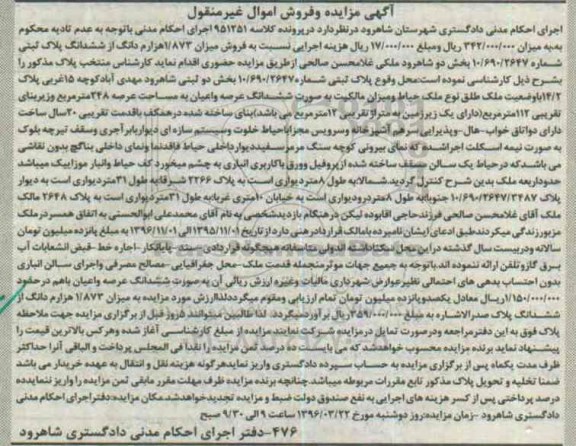 آگهی مزایده وفروش اموال غیرمنقول
اجرای احکام مدنی دادگستری شهرستان شاهرود درنظردارد درپرونده کلاسه ۹۵۱۲۵۱ اجرای احکام مدنی باتوجه به عدم تادیه محکوم
به،به میزان ۳۴۲/۰۰۰/۰۰۰ ریال ومبلغ ۱۷/۰۰۰/۰۰۰ ریال هزینه اجرایی نسبت به فروش میزان ۱/۸۷۳هزارم دانگ از ششدانگ پلاک ثبتی
شماره ۱۰/۶۹۰/۲۶۴۷ بخش دو شاهرود ملکی غلامحسن صالحی ازطریق مزایده حضوری اقدام نماید کارشناس منتخب پلاک مذکور را
بشرح ذیل کارشناسی نموده است:محل وقوع پلاک ثبتی شماره۱۰/۶۹۰/۲۶۴۷ بخش دو ثبتی شاهرود مهدی آبادکوچه ۱۵غربی پلاک
۱۴/۲باوضعیت ملک طلق نوع ملک حیاط ومیزان مالکیت به صورت ششدانگ عرصه واعیان به مساحت عرصه ۲۴۸مترمربع وزیربنای
تقریبی ۱۱۲مترمربع(دارای یک زیرزمین به متراژ تقریبی ۱۲مترمربع می باشد)بنای ساخته شده درهمکف باقدمت تقریبی ۳۰سال ساخت
دارای دواتاق خواب-هال -پذیرایی-سرهم آشپزخانه وسرویس مجزاباحیاط خلوت وسیستم سازه ای دیواربابرآجری وسقف تیرچه بلوک
به صورت نیمه اسکلت اجراشده که نمای بیرونی کوچه سنگ مرمرسفیددیوارداخلی حیاط فاقدنما ونمای داخلی بناگچ بدون نقاشی
می باشدکه درحیاط یک سالن مسقف ساخته شده ازپروفیل وورق باکاربری انباری به چشم میخورد کف حیاط وانبار موزاییک میباشد
حدوداربعه ملک بدین شرح کنترل گردید.شمالابه طول ۸متردیواری است به پلاک ۲۲۶۶ شرقابه طول ۳۱متردیواری است به دیوار
پلاک ۱۰/۶۹۰/۲۶۴۷/۳۴۸۷ جنوبابه طول ۸متردرودیواری است به خیابان ۱۰متری غربابه طول ۳۱متردیواری است به پلاک ۲۶۴۸ مالک
ملک آقای غلامحسن صالحی فرزندحاجی اقابوده لیکن درهنگام بازدیدشخصی به نام آقای محمدعلی ابوالحسنی به اتفاق همسردرملک
مزبورزندگی میکردندطبق ادعای ایشان نامبرده بامالک قراردادرهنی دارد از تاریخ ۱۳۹۵/۱۱/۰۱الی ۱۳۹۶/۱۱/۰۱ به مبلغ پانزده میلیون تومان
سالانه ودربیست سال گذشته دراین محل سکناداشته اندولی متاسفانه هیچگونه قراردادی-سند-پایانکار -اجاره خط -قبض انشعابات آب
برق گازوتلفن ارائه ننموده اند.باتوجه به جمیع جهات موثرمنجمله قدمت ملک -محل جغرافیایی -مصالح مصرفی واجرای سالن انباری
بدون احتساب بدهی های احتمالی نظیرعوارض شهرداری مالیات وغیره ارزش ریالی آن به صورت ششدانگ عرصه واعیان باهم درحدود
۱/۱۵۰/۰۰۰/۰۰۰ریال معادل یکصدوپانزده میلیون تومان تمام ارزیابی ومقوم میگرددلذاارزش مورد مزایده به میزان ۱/۸۷۳ هزارم دانگ از
ششدانگ پلاک صدرالاشاره به مبلغ ۳۵۹/۰۰۰/۰۰۰ریال برآوردمیگردد. لذا طالبین میتوانند ۵روز قبل از برگزاری مزایده جهت ملاحظه
پلاک فوق به این دفترمراجعه ودرصورت تمایل درمزایده شرکت نمایند مزایده از مبلغ کارشناسی آغاز شده وهرکس بالاترین قیمت را
پیشنهاد نماید برنده مزایده محسوب خواهدشد که می بایست ۱۰ درصد ثمن مزایده را نقدا فی المجلس پرداخت و الباقی آنرا حداکثر
ظرف مدت یکماه پس از برگزاری مزایده به حساب سپرده دادگستری واریز نمایدهرگونه هزینه نقل و انتقال به عهده خریدار می باشد
ضمنا تخلیه و تحویل پلاک مذکور تابع مقررات مربوطه میباشد.چنانچه برنده مزایده ظرف مهلت مقرر مابقی ثمن مزایده را واریز ننماید۱۰ه
درصد پرداختی پس از کسر هزینه های اجرایی به نفع صندوق دولت ضبط و مزایده تجدیدخواهدشد.مکان مزایده:دفتراجرای احکام مدنی
دادگستری شاهرود -زمان مزایده:روز دوشنبه مورخ ۱۳۹۶/۰۳/۲۲ ساعت ۹ الی ۹/۳۰ صبح
۴۷۶-دفتر اجرای احکام مدنی دادگستری شاهرود